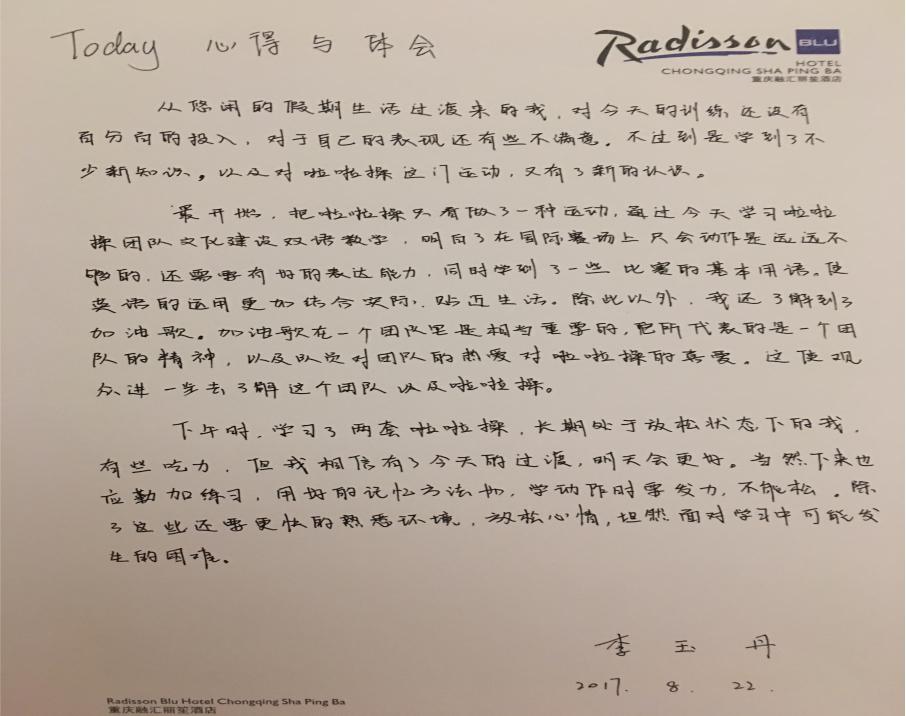 Today 心得与体会
Radisson BLU
HOTEL
CHONGQING SHA PING BA
重庆融汇丽笙酒店
从悠闲的假期生活过渡来的我,对今天的训练还没有
百分百的投入,对于自己的表现还有些不满意。不过到是学到了不
少新知识。以及对啦啦操这门运动,又有了新的认识。
最开始,把啦啦操只看做了一种运动,通过今天学习啦啦
操团队文化建设双语教学,明白了在国际赛场上只会动作是远远不
够的,还需要有好的表达能力,同时学到了一些比赛的基本用语。使
英语的运用更加结合实际,贴近生活。除此以外,我还了解到了
加油歌。加油歌在一个团队里是相当重要的,它所代表的是一个团
队的精神,以及队员对团队的热爱对啦啦操的喜爱。这使观
众进一步去了解这个团队以及啦啦操。
下午时,学习了两套啦啦操,长期处于放松状态下的我,
有些吃力,但我相信有了今天的过渡,明天会更好。当然下来也
应勤加练习,用好的记忆方法加,学动作时要发力,不能松。除
了这些还要更快的熟悉环境,放松心情,坦然面对学习中可能发
生的困难。
李玉丹
2017. 8. 22.
Radisson Blu Hotel Chongqing Sha Ping Ba
重庆融汇丽笙酒店